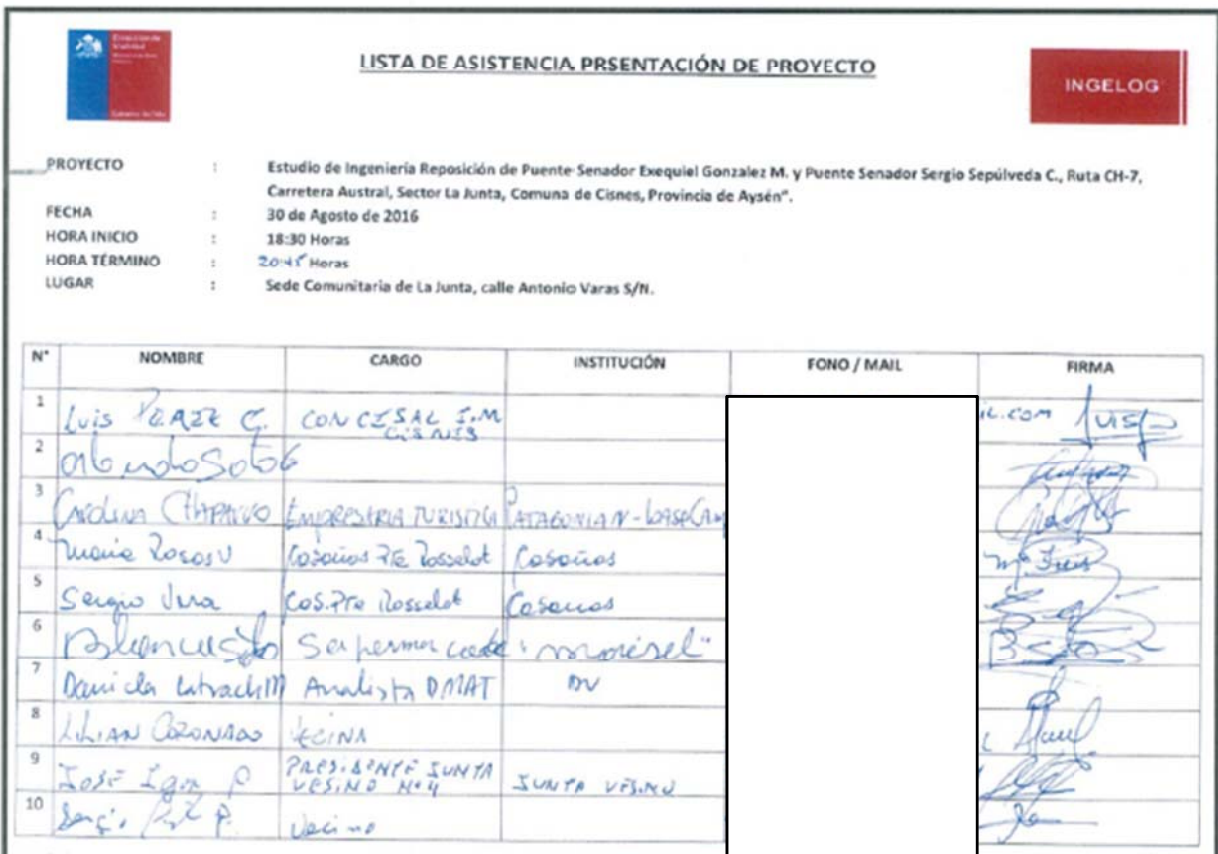 Dirección de
Vialidad
Gobierno de Chile
LISTA DE ASISTENCIA PRSENTACIÓN DE PROYECTO
INGELOG
PROYECTO : Estudio de Ingeniería Reposición de Puente Senador Exequiel Gonzalez M. y Puente Senador Sergio Sepúlveda C., Ruta CH-7,
Carretera Austral, Sector La Junta, Comuna de Cisnes, Provincia de Aysén".
FECHA : 30 de Agosto de 2016
HORA INICIO : 18:30 Horas
HORA TÉRMINO : 20:45 Horas
LUGAR : Sede Comunitaria de La Junta, calle Antonio Varas S/N.
N° NOMBRE CARGO INSTITUCIÓN FONO / MAIL FIRMA
1 Luis C. CONCESAL I.M
CISNES
il.com Luis P
2 Orlando Soto G
3 Carolina Chaparro EMPRESARIA TURISTICA PATAGONIA N-BASECAMP
4 Maria Rosselot
5 Sergio Vera Cos. Pte Rosselot
6 Supermercado
7 Daniela Analista DMAT DV
8 LILIAN CORONADO VECINA
9 José Igor P PRESIDENTE JUNTA
VESINO N°4 JUNTA VESINO
10 Vecino